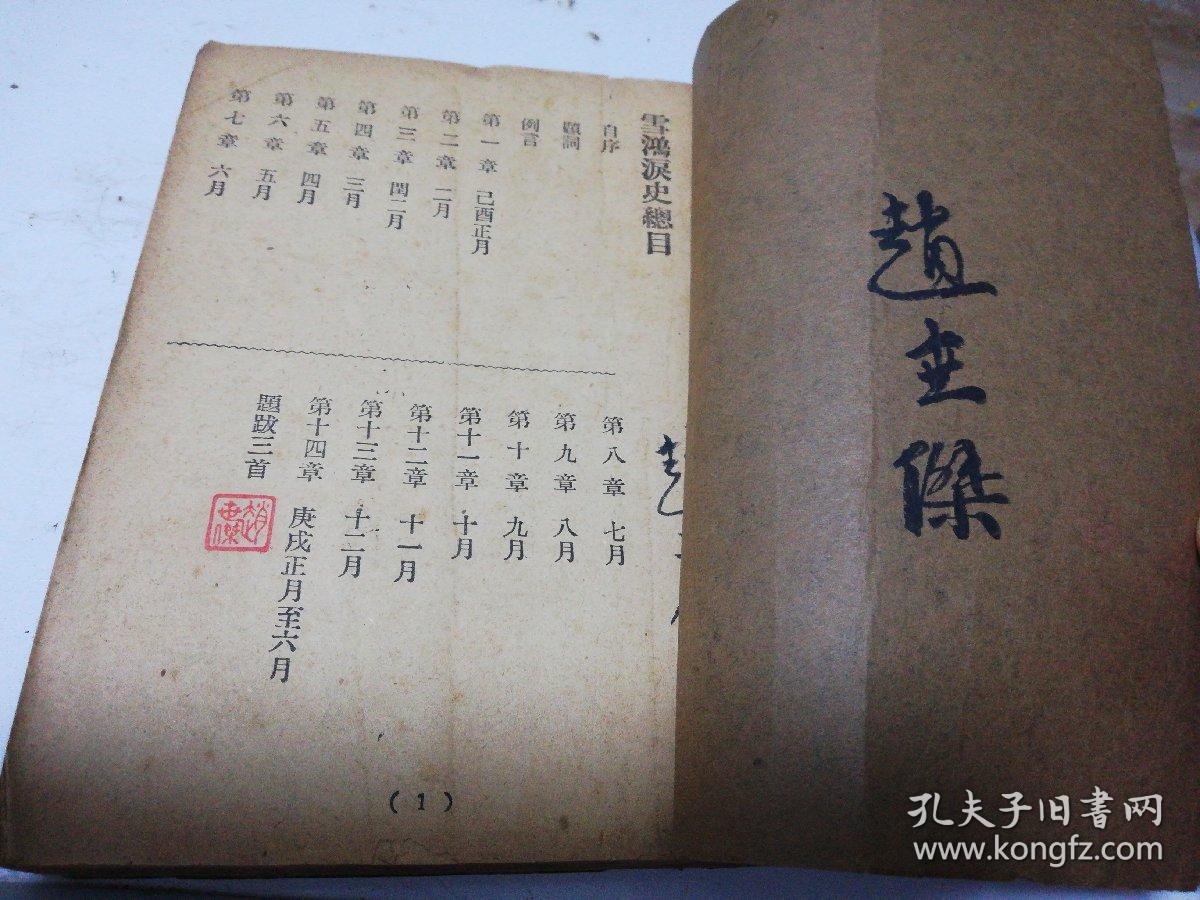 趙世傑
雪鴻淚史總目
自序
題詞
例言
第一章 己酉正月
第二章 二月
第三章 閏二月
第四章 三月
第五章 四月
第六章 五月
第七章 六月
第八章 七月
第九章 八月
第十章 九月
第十一章 十月
第十二章 十一月
第十三章 十二月
第十四章 庚戌正月至六月
題跋三首
趙世傑
趙
(1)
孔夫子旧书网
www.kongfz.com